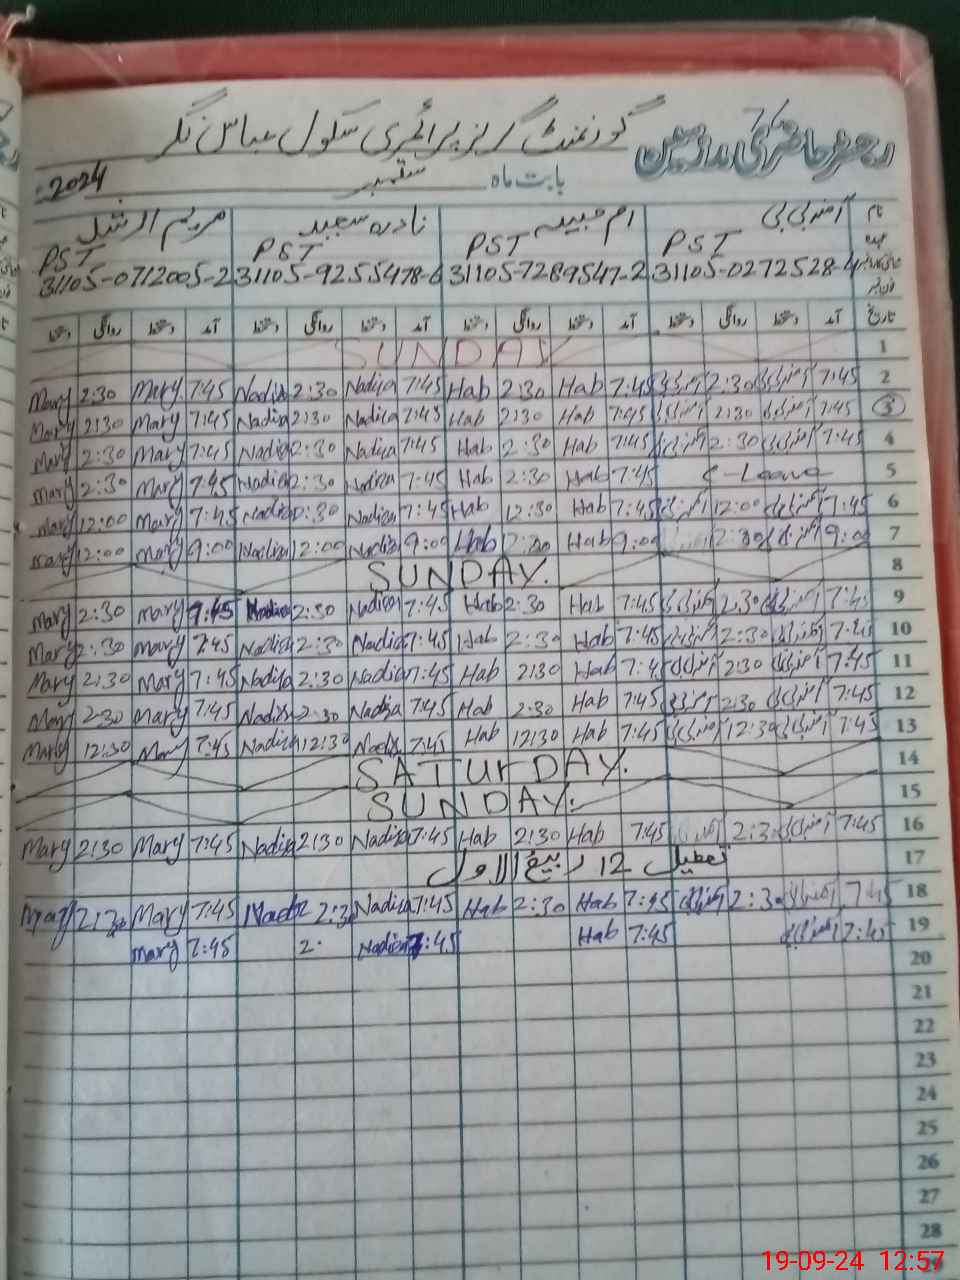 رجسٹر حاضری مدرسین
گورنمنٹ گرلز پرائمری سکول عباس نگر
بابت ماہ ستمبر 2024
نام آمنہ بی بی ام حبیبہ نادرہ سعید مریم ارشد
عہدہ PST PST PST PST
31105-0272528-4 31105-7289547-2 31105-9255478-6 31105-0712005-2
تاریخ آمد دستخط روانگی دستخط آمد دستخط روانگی دستخط آمد دستخط روانگی دستخط آمد دستخط روانگی دستخط
1 SUNDAY
Mary 2:30 Mary 7:45 Nadiya 2:30 Nadiya 7:45 Hab 2:30 Hab 7:45 آمنہ بی بی 2:30 آمنہ بی بی 7:45 2
Mary 2:30 Mary 7:45 Nadiya 2:30 Nadiya 7:45 Hab 2:30 Hab 7:45 آمنہ بی بی 2:30 آمنہ بی بی 7:45 3
Mary 2:30 Mary 7:45 Nadiya 2:30 Nadiya 7:45 Hab 2:30 Hab 7:45 آمنہ بی بی 2:30 آمنہ بی بی 7:45 4
Mary 2:30 Mary 7:45 Nadiya 2:30 Nadiya 7:45 Hab 2:30 Hab 7:45 C-Leave 5
Mary 12:00 Mary 7:45 Nadiya Nadiya 7:45 Hab 12:30 Hab 7:45 آمنہ بی بی 12:00 آمنہ بی بی 7:45 6
Mary 12:00 Mary 9:00 Nadiya 12:00 Nadiya 9:00 Hab Hab 9:00 آمنہ بی بی 9:00 7
SUNDAY. 8
Mary 2:30 Mary 7:45 Nadiya 2:30 Nadiya 7:45 Hab 2:30 Hab 7:45 آمنہ بی بی 2:30 آمنہ بی بی 7:45 9
Mary 2:30 Mary 7:45 Nadiya 2:30 Nadiya 7:45 Hab 2:30 Hab 7:45 آمنہ بی بی 2:30 آمنہ بی بی 7:45 10
Mary 2:30 Mary 7:45 Nadiya 2:30 Nadiya 7:45 Hab 2:30 Hab 7:45 آمنہ بی بی 2:30 آمنہ بی بی 7:45 11
Mary 2:30 Mary 7:45 Nadiya 2:30 Nadiya 7:45 Hab 2:30 Hab 7:45 آمنہ بی بی 2:30 آمنہ بی بی 7:45 12
Mary 12:30 Mary 7:45 Nadiya 12:30 Nadiya 7:45 Hab 12:30 Hab 7:45 آمنہ بی بی 12:30 آمنہ بی بی 7:45 13
SATURDAY. 14
SUNDAY. 15
Mary 2:30 Mary 7:45 Nadiya 2:30 Nadiya 7:45 Hab 2:30 Hab 7:45 آمنہ بی بی 2:30 آمنہ بی بی 7:45 16
تعطیل 12 ربیع الاول 17
Mary 2:30 Mary 7:45 2:30 Nadiya 7:45 Hab 2:30 Hab 7:45 آمنہ بی بی 2:30 آمنہ بی بی 7:45 18
Mary 7:45 2: Nadiya 7:45 Hab 7:45 آمنہ بی بی 7:45 19
20
21
22
23
24
25
26
27
28
19-09-24 12:57